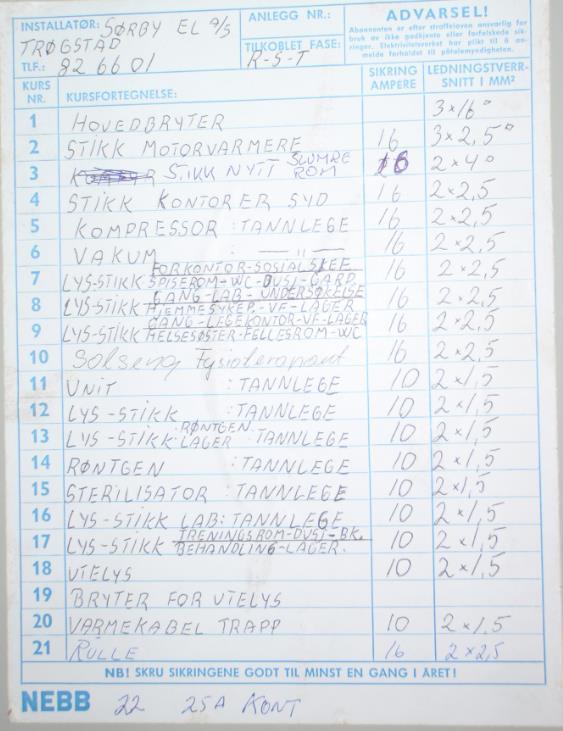 INSTALLATØR: SØRBY EL A/S
TRØGSTAD
TLF.: 82 66 01
ANLEGG NR.:
TILKOBLET FASE:
R-S-T
ADVARSEL!
Abonnenten er etter straffeloven ansvarlig for
bruk av ikke godkjente eller forfalskede sik-
ringer. Elektrisitetsverket har plikt til å an-
melde forholdet til påtalemyndigheten.
KURS NR. KURSFORTEGNELSE: SIKRING AMPERE LEDNINGSTVERR-SNITT I MM²
1 HOVEDBRYTER 3×16°
2 STIKK MOTORVARMERE 16 3×2,5°
3 STIKK NYTT SLUMRE ROM 16 2×4°
4 STIKK KONTORER SYD 16 2×2,5
5 KOMPRESSOR : TANNLEGE 16 2×2,5
6 VAKUM — " — 16 2×2,5
7 LYS-STIKK FORKONTOR-SOSIALSJEF SPISEROM-WC-DUSJ-GARD 16 2×2,5
8 LYS-STIKK GANG-LAB-UNDERSØKELSE HJEMMESYKEP.-VF-LAGER 16 2×2,5
9 LYS-STIKK GANG-LEGEKONTOR-VF-LAGER HELSESØSTER-FELLESROM-WC 16 2×2,5
10 Solseng Fysioterapaut 16 2×2,5
11 UNIT : TANNLEGE 10 2×1,5
12 LYS-STIKK : TANNLEGE 10 2×1,5
13 LYS-STIKK RØNTGEN LAGER : TANNLEGE 10 2×1,5
14 RØNTGEN : TANNLEGE 10 2×1,5
15 STERILISATOR : TANNLEGE 10 2×1,5
16 LYS-STIKK LAB: TANNLEGE 10 2×1,5
17 LYS-STIKK TRENINGSROM-DUSJ-BK. BEHANDLING-LAGER. 10 2×1,5
18 UTELYS 10 2×1,5
19 BRYTER FOR UTELYS
20 VARMEKABEL TRAPP 10 2×1,5
21 RULLE 16 2×2,5
NB! SKRU SIKRINGENE GODT TIL MINST EN GANG I ÅRET!
NEBB 22 25A KONT